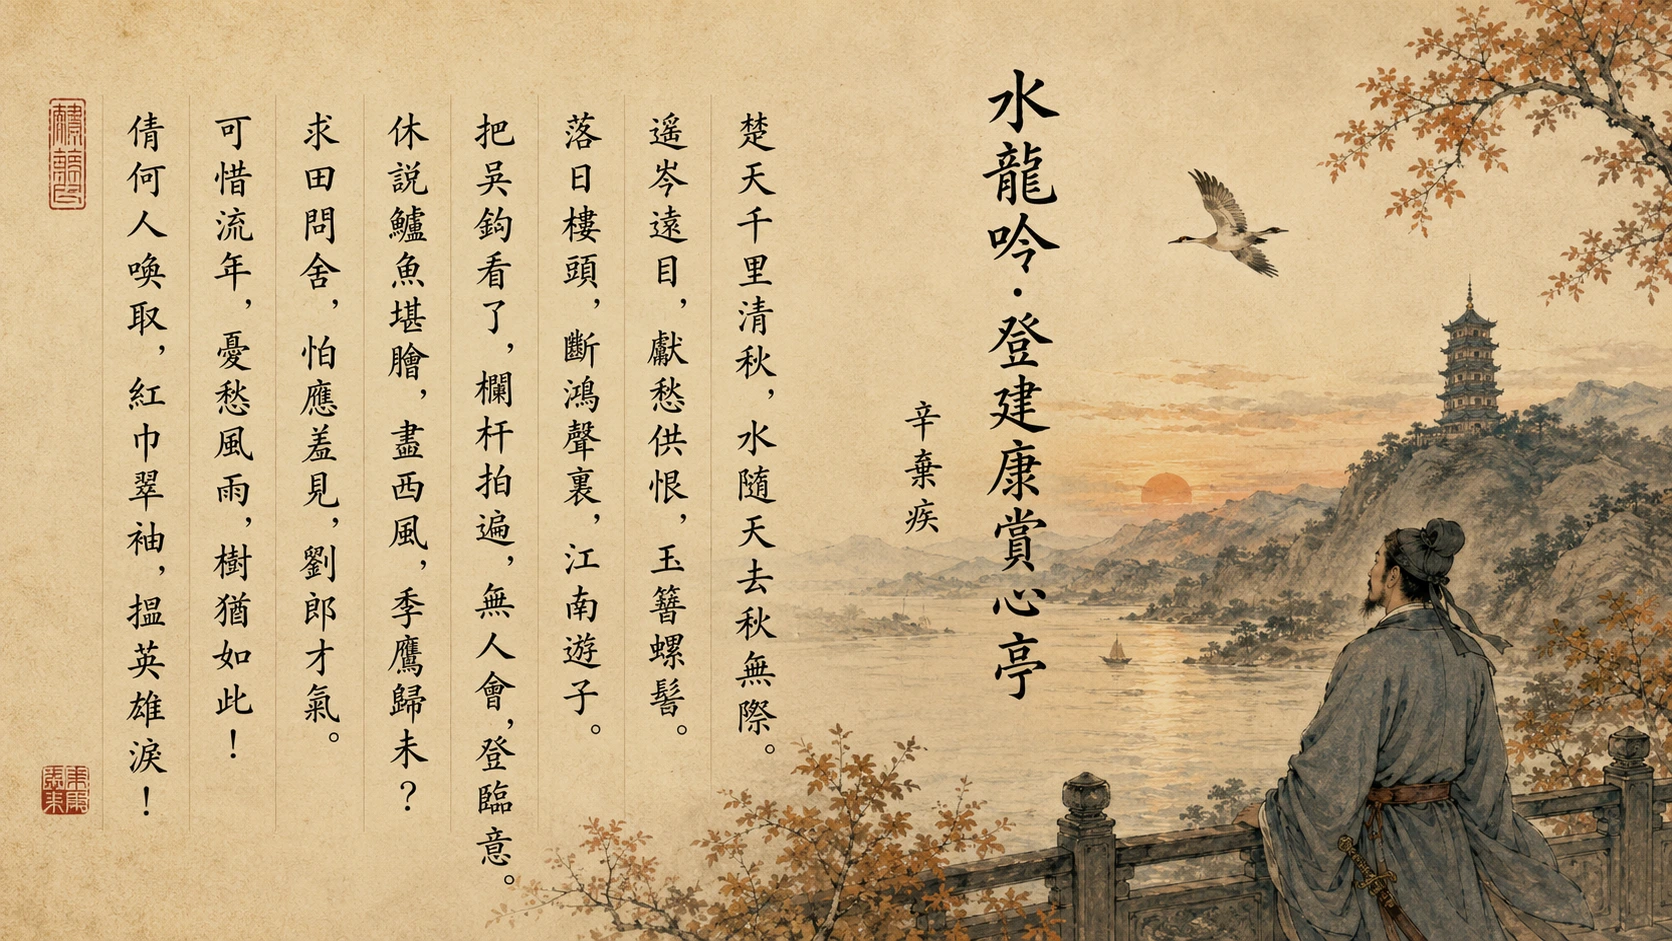 水龍吟·登建康賞心亭
辛棄疾
楚天千里清秋，水隨天去秋無際。
遥岑遠目，獻愁供恨，玉簪螺髻。
落日樓頭，斷鴻聲裏，江南遊子。
把吳鈎看了，欄杆拍遍，無人會，登臨意。
休説鱸魚堪膾，盡西風，季鷹歸未？
求田問舍，怕應羞見，劉郎才氣。
可惜流年，憂愁風雨，樹猶如此！
倩何人喚取，紅巾翠袖，揾英雄淚！